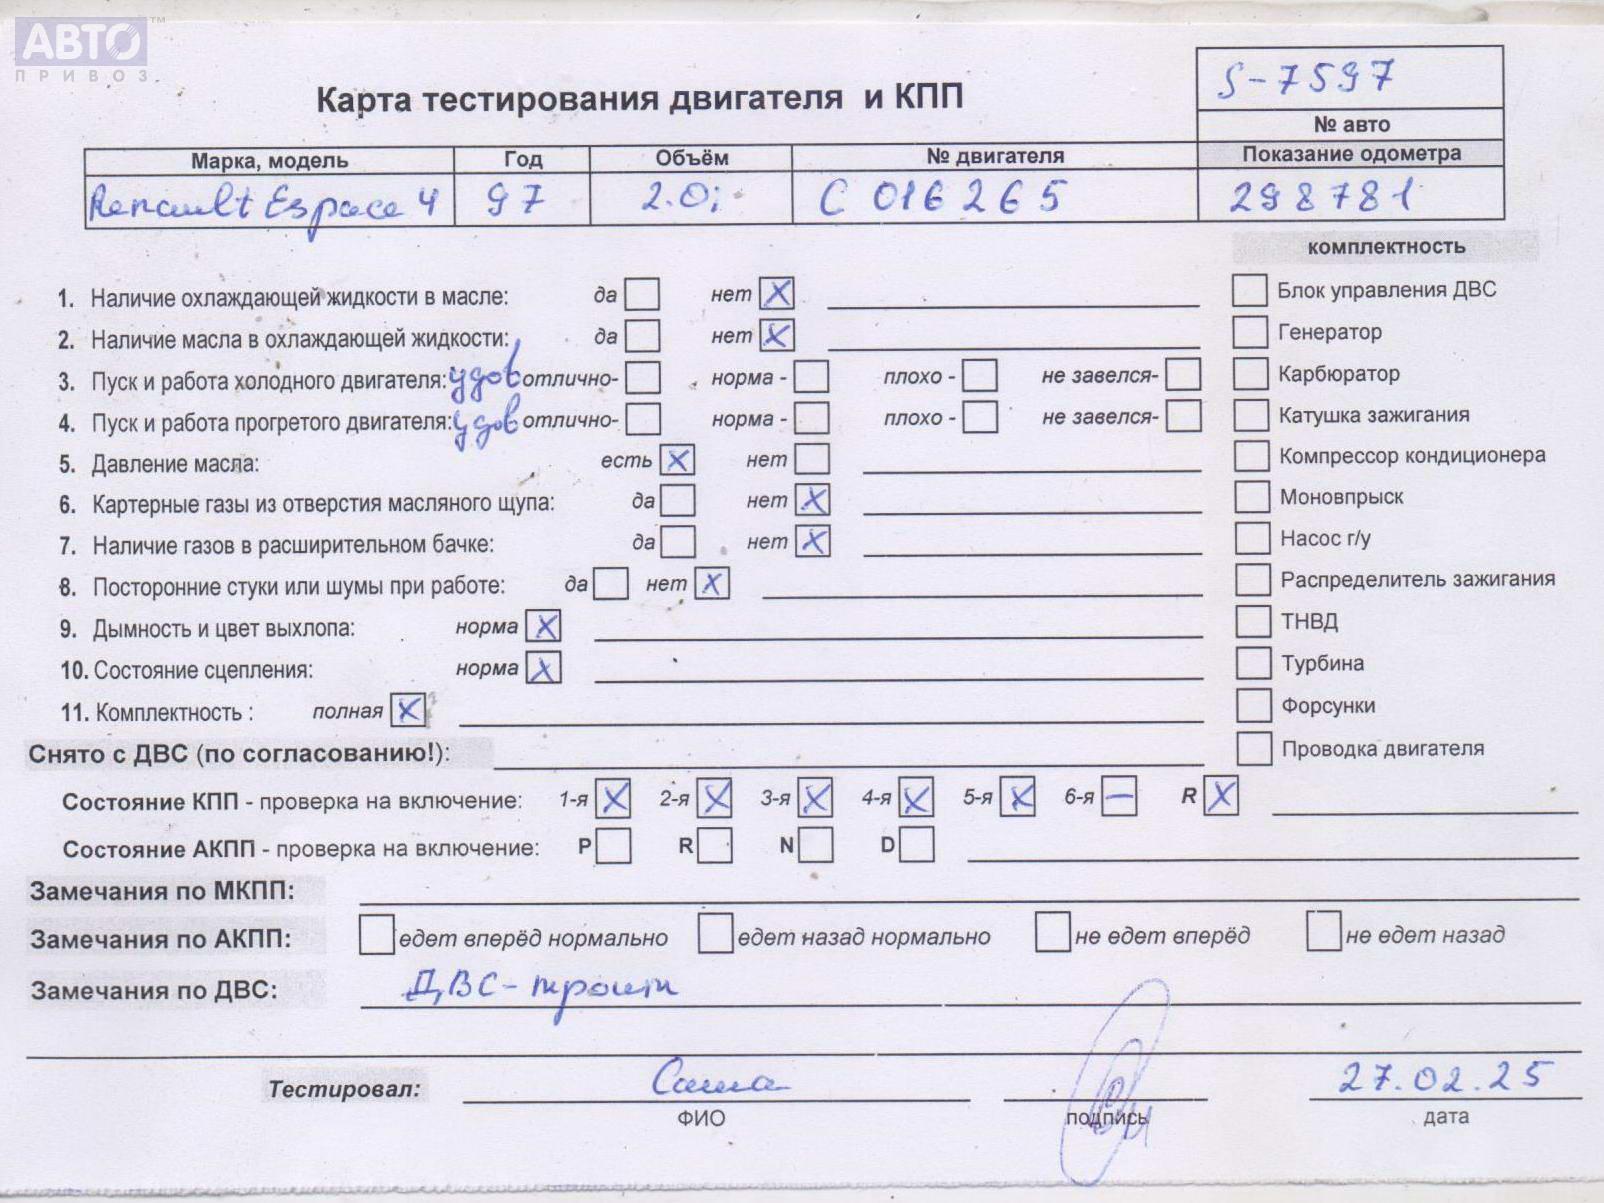 АВТО™
ПРИВОЗ
S-7597
Карта тестирования двигателя и КПП
№ авто
Марка, модель Год Объём № двигателя Показание одометра
Renault Espace 4 97 2.0i C 016265 298781
комплектность
1. Наличие охлаждающей жидкости в масле: да нет X Блок управления ДВС
2. Наличие масла в охлаждающей жидкости: да нет X Генератор
3. Пуск и работа холодного двигателя: удов отлично- норма - плохо - не завелся- Карбюратор
4. Пуск и работа прогретого двигателя: удов отлично- норма - плохо - не завелся- Катушка зажигания
5. Давление масла: есть X нет Компрессор кондиционера
6. Картерные газы из отверстия масляного щупа: да нет X Моновпрыск
7. Наличие газов в расширительном бачке: да нет X Насос г/у
8. Посторонние стуки или шумы при работе: да нет X Распределитель зажигания
9. Дымность и цвет выхлопа: норма X ТНВД
10. Состояние сцепления: норма X Турбина
11. Комплектность : полная X Форсунки
Снято с ДВС (по согласованию!): Проводка двигателя
Состояние КПП - проверка на включение: 1-я X 2-я X 3-я X 4-я X 5-я X 6-я – R X
Состояние АКПП - проверка на включение: P R N D
Замечания по МКПП:
Замечания по АКПП: едет вперёд нормально едет назад нормально не едет вперёд не едет назад
Замечания по ДВС: ДВС-троит
Тестировал: Саша 27.02.25
ФИО подпись дата